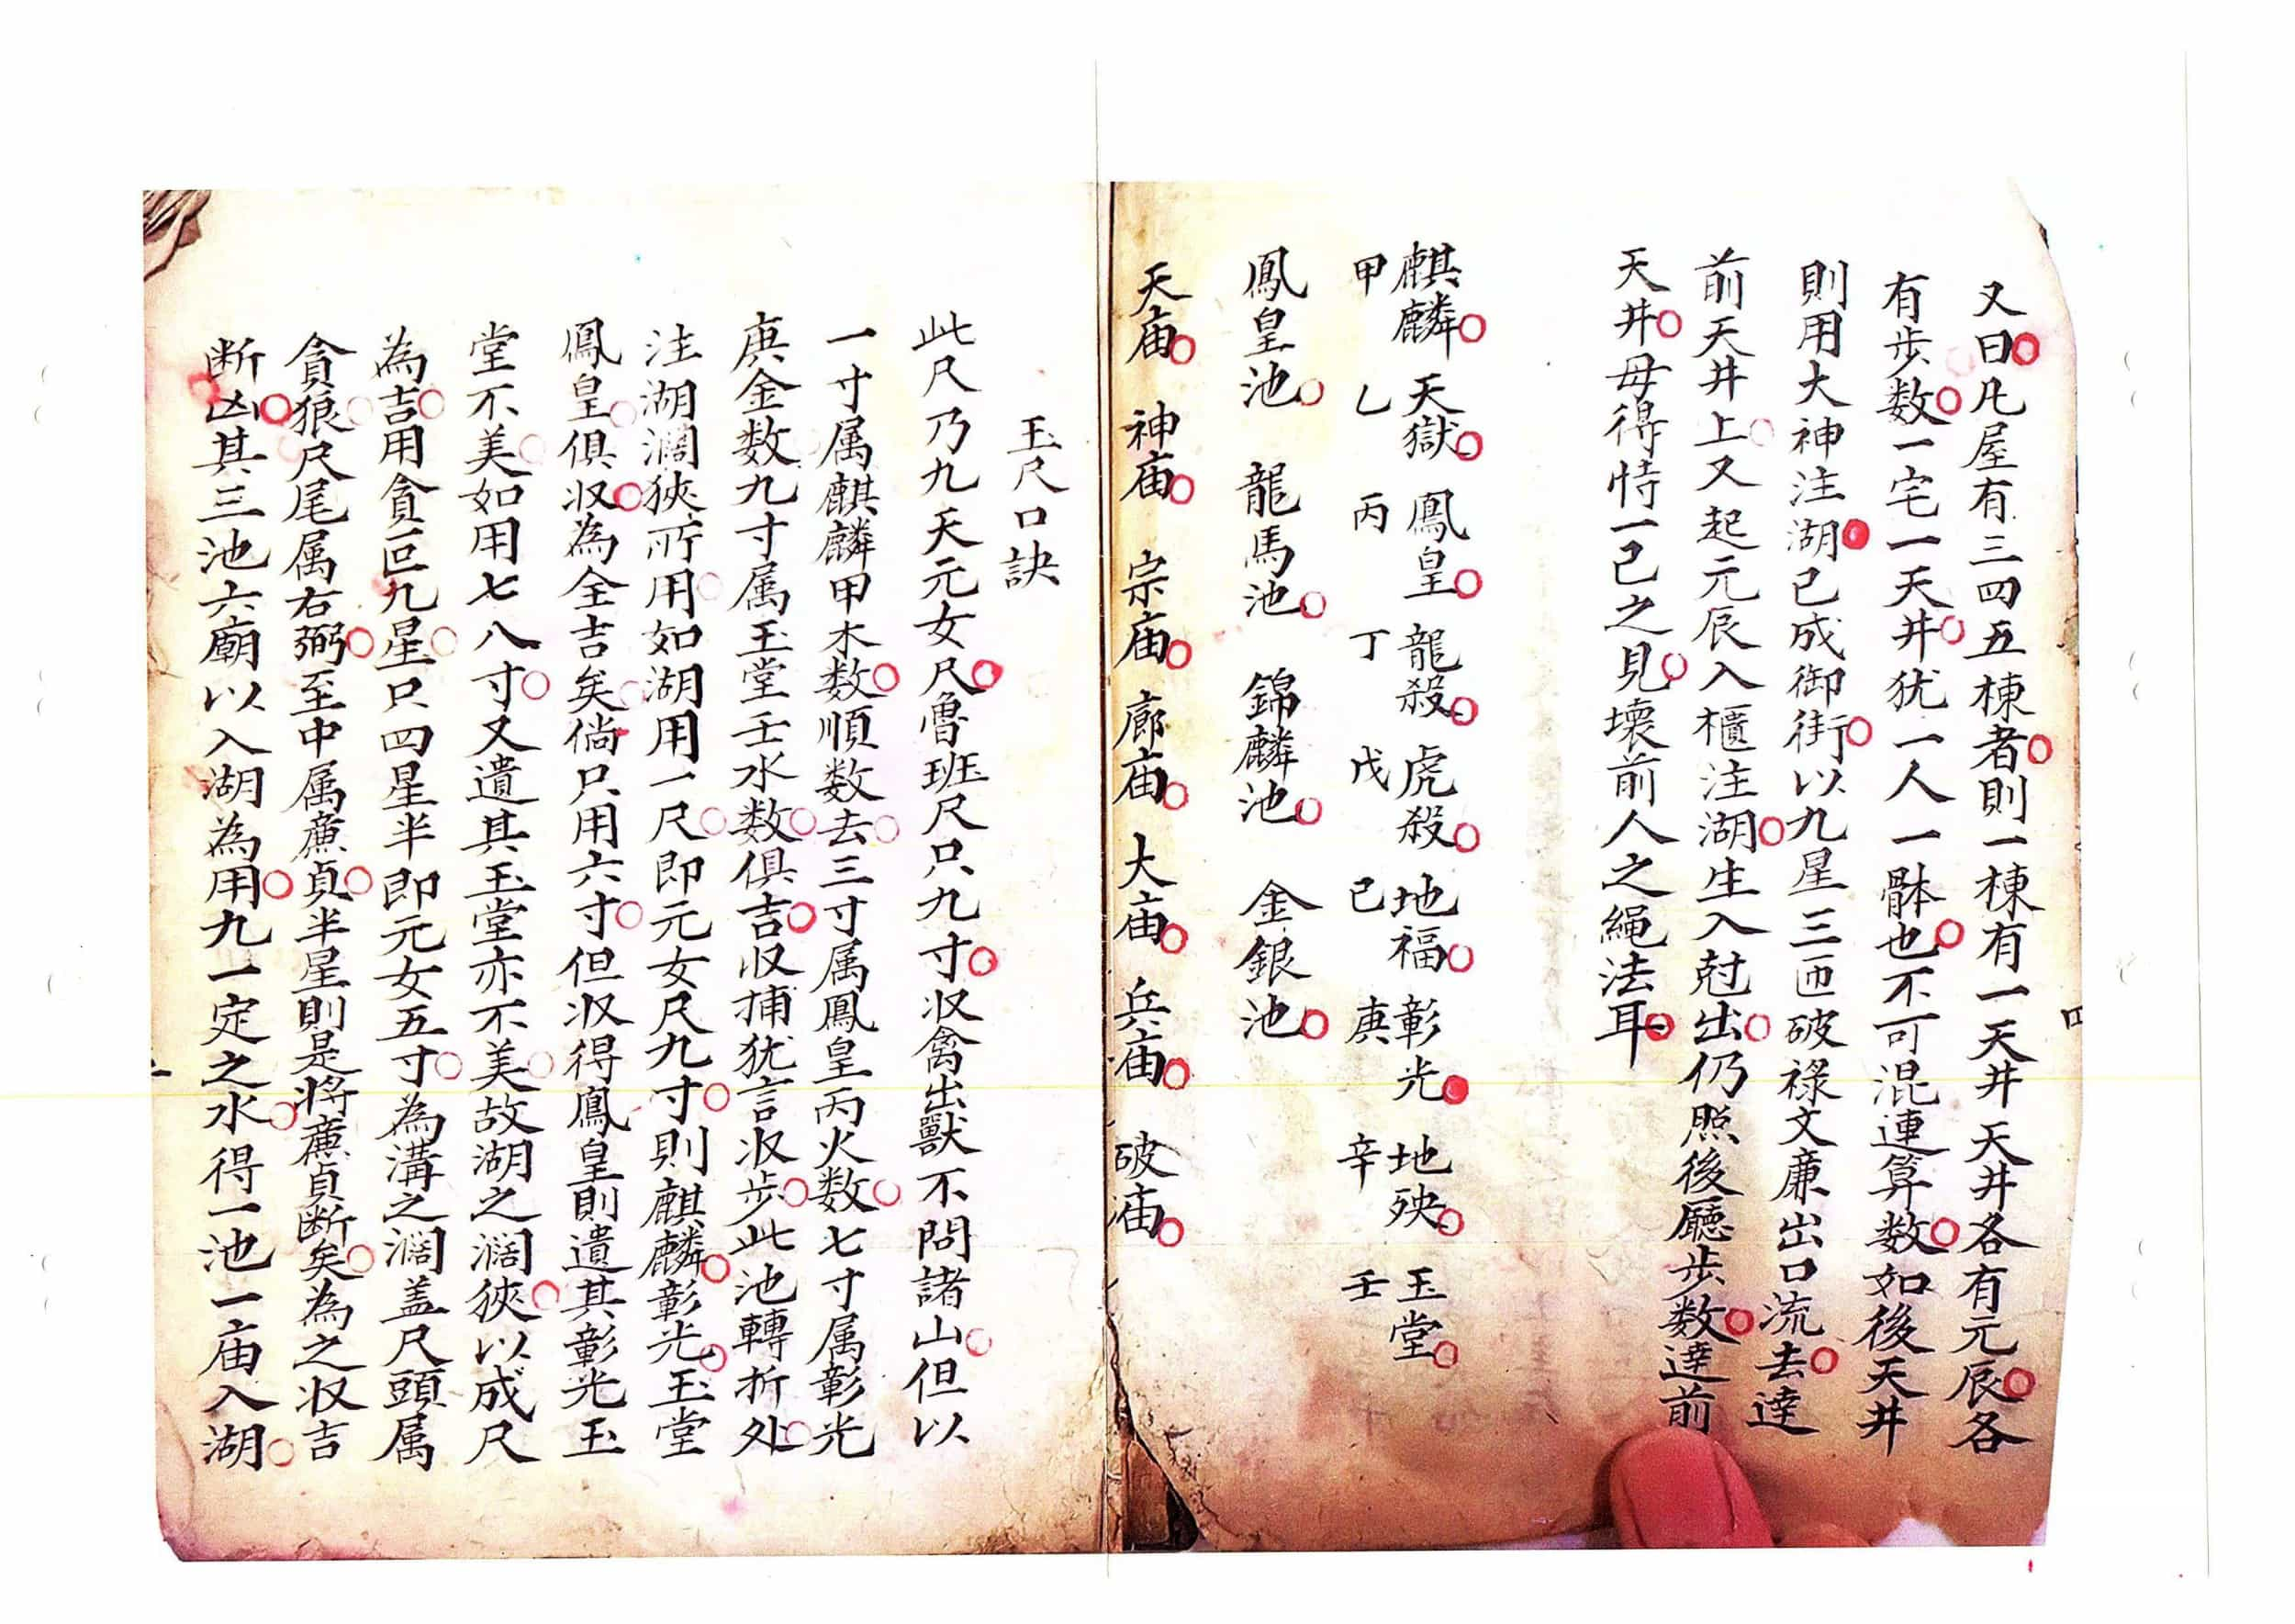 又曰凡屋有三四五棟者則一棟有一天井天井各有元辰各
有步数一宅一天井犹一人一骵也不可混連算数如後天井
則用大神注湖已成御街以九星三匝破祿文廉出口流去逹
前天井上又起元辰入櫃注湖生入尅出仍照後廳步数逹前
天井毋得恃一己之見壊前人之繩法耳
麒麟 天獄 鳳皇 龍殺 虎殺 地福 彰光 地殃 玉堂
甲 乙 丙 丁 戊 己 庚 辛 壬
鳳皇池 龍馬池 錦麟池 金銀池
天庙 神庙 宗庙 廊庙 大庙 兵庙 破庙
四
玉尺口訣
此尺乃九天元女尺魯班尺只九寸収禽出獸不問諸山但以
一寸属麒麟甲木数順数去三寸属鳳皇丙火数七寸属彰光
庚金数九寸属玉堂壬水数俱吉収捕犹言収步此池轉折处
注湖濶狹所用如湖用一尺即元女尺九寸則麒麟彰光玉堂
鳳皇俱収為全吉矣倘只用六寸但収得鳳皇則遺其彰光玉
堂不美如用七八寸又遺其玉堂亦不美故湖之濶狹以成尺
為吉用貪叵九星只四星半即元女五寸為溝之濶盖尺頭属
貪狼尺尾属右弼至中属亷貞半星則是将亷貞断矣為之収吉
断凶其三池六廟以入湖為用九一定之水得一池一庙入湖